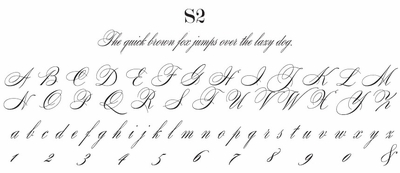 S2
The quick brown fox jumps over the lazy dog.
A B C D E F G H I J K L M
N O P Q R S T U V W X Y Z
a b c d e f g h i j k l m n o p q r s t u v w x y z
1 2 3 4 5 6 7 8 9 0 &